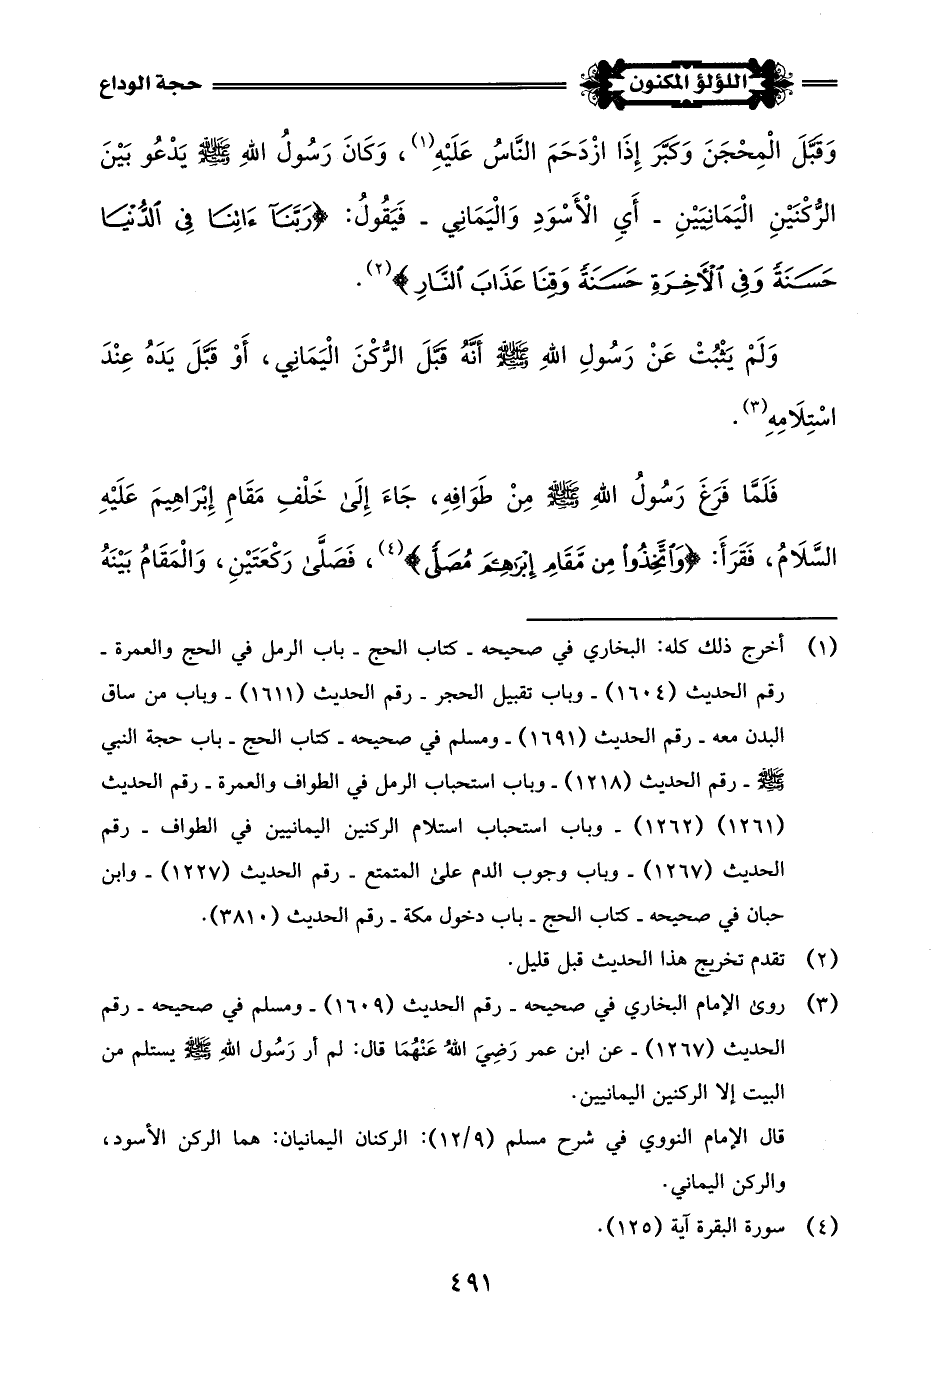 اللؤلؤ المكنون
حجة الوداع
وَقَبَّلَ الْمِحْجَنَ وَكَبَّرَ إِذَا ازْدَحَمَ النَّاسُ عَلَيْهِ(١)، وَكَانَ رَسُولُ اللهِ ﷺ يَدْعُو بَيْنَ
الرُّكْنَيْنِ الْيَمَانِيَيْنِ ـ أَيِ الْأَسْوَدِ وَالْيَمَانِي ـ فَيَقُولُ: ﴿رَبَّنَآ ءَاتِنَا فِى ٱلدُّنْيَا
حَسَنَةً وَفِى ٱلْأَخِرَةِ حَسَنَةً وَقِنَا عَذَابَ ٱلنَّارِ﴾(٢).
وَلَمْ يَثْبُتْ عَنْ رَسُولِ اللهِ ﷺ أَنَّهُ قَبَّلَ الرُّكْنَ الْيَمَانِي، أَوْ قَبَّلَ يَدَهُ عِنْدَ
اسْتِلَامِهِ(٣).
فَلَمَّا فَرَغَ رَسُولُ اللهِ ﷺ مِنْ طَوَافِهِ، جَاءَ إِلَىٰ خَلْفِ مَقَامِ إِبْرَاهِيمَ عَلَيْهِ
السَّلَامُ، فَقَرَأَ: ﴿وَٱتَّخِذُوا۟ مِن مَّقَامِ إِبْرَٰهِـۧمَ مُصَلًّى﴾(٤)، فَصَلَّىٰ رَكْعَتَيْنِ، وَالْمَقَامُ بَيْنَهُ
(١) أخرج ذلك كله: البخاري في صحيحه ـ كتاب الحج ـ باب الرمل في الحج والعمرة ـ
رقم الحديث (١٦٠٤) ـ وباب تقبيل الحجر ـ رقم الحديث (١٦١١) ـ وباب من ساق
البدن معه ـ رقم الحديث (١٦٩١) ـ ومسلم في صحيحه ـ كتاب الحج ـ باب حجة النبي
ﷺ ـ رقم الحديث (١٢١٨) ـ وباب استحباب الرمل في الطواف والعمرة ـ رقم الحديث
(١٢٦١) (١٢٦٢) ـ وباب استحباب استلام الركنين اليمانيين في الطواف ـ رقم
الحديث (١٢٦٧) ـ وباب وجوب الدم علىٰ المتمتع ـ رقم الحديث (١٢٢٧) ـ وابن
حبان في صحيحه ـ كتاب الحج ـ باب دخول مكة ـ رقم الحديث (٣٨١٠).
(٢) تقدم تخريج هذا الحديث قبل قليل.
(٣) روىٰ الإمام البخاري في صحيحه ـ رقم الحديث (١٦٠٩) ـ ومسلم في صحيحه ـ رقم
الحديث (١٢٦٧) ـ عن ابن عمر رَضِيَ اللهُ عَنْهُمَا قال: لم أر رَسُول اللهِ ﷺ يستلم من
البيت إلا الركنين اليمانيين.
قال الإمام النووي في شرح مسلم (١٢/٩): الركنان اليمانيان: هما الركن الأسود،
والركن اليماني.
(٤) سورة البقرة آية (١٢٥).
٤٩١